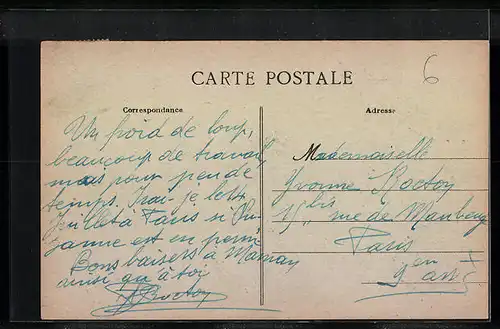 6
CARTE POSTALE
Correspondance
Adresse
Un froid de loup,
beaucoup de travail,
mais pour peu de
temps. Irai-je le 14
Juillet à Paris si Suzanne
est en permi
Bons baisers à Maman
ainsi qu'à toi
Mademoiselle
Yvonne Roctoy
15 bis rue de Maubeuge
Paris